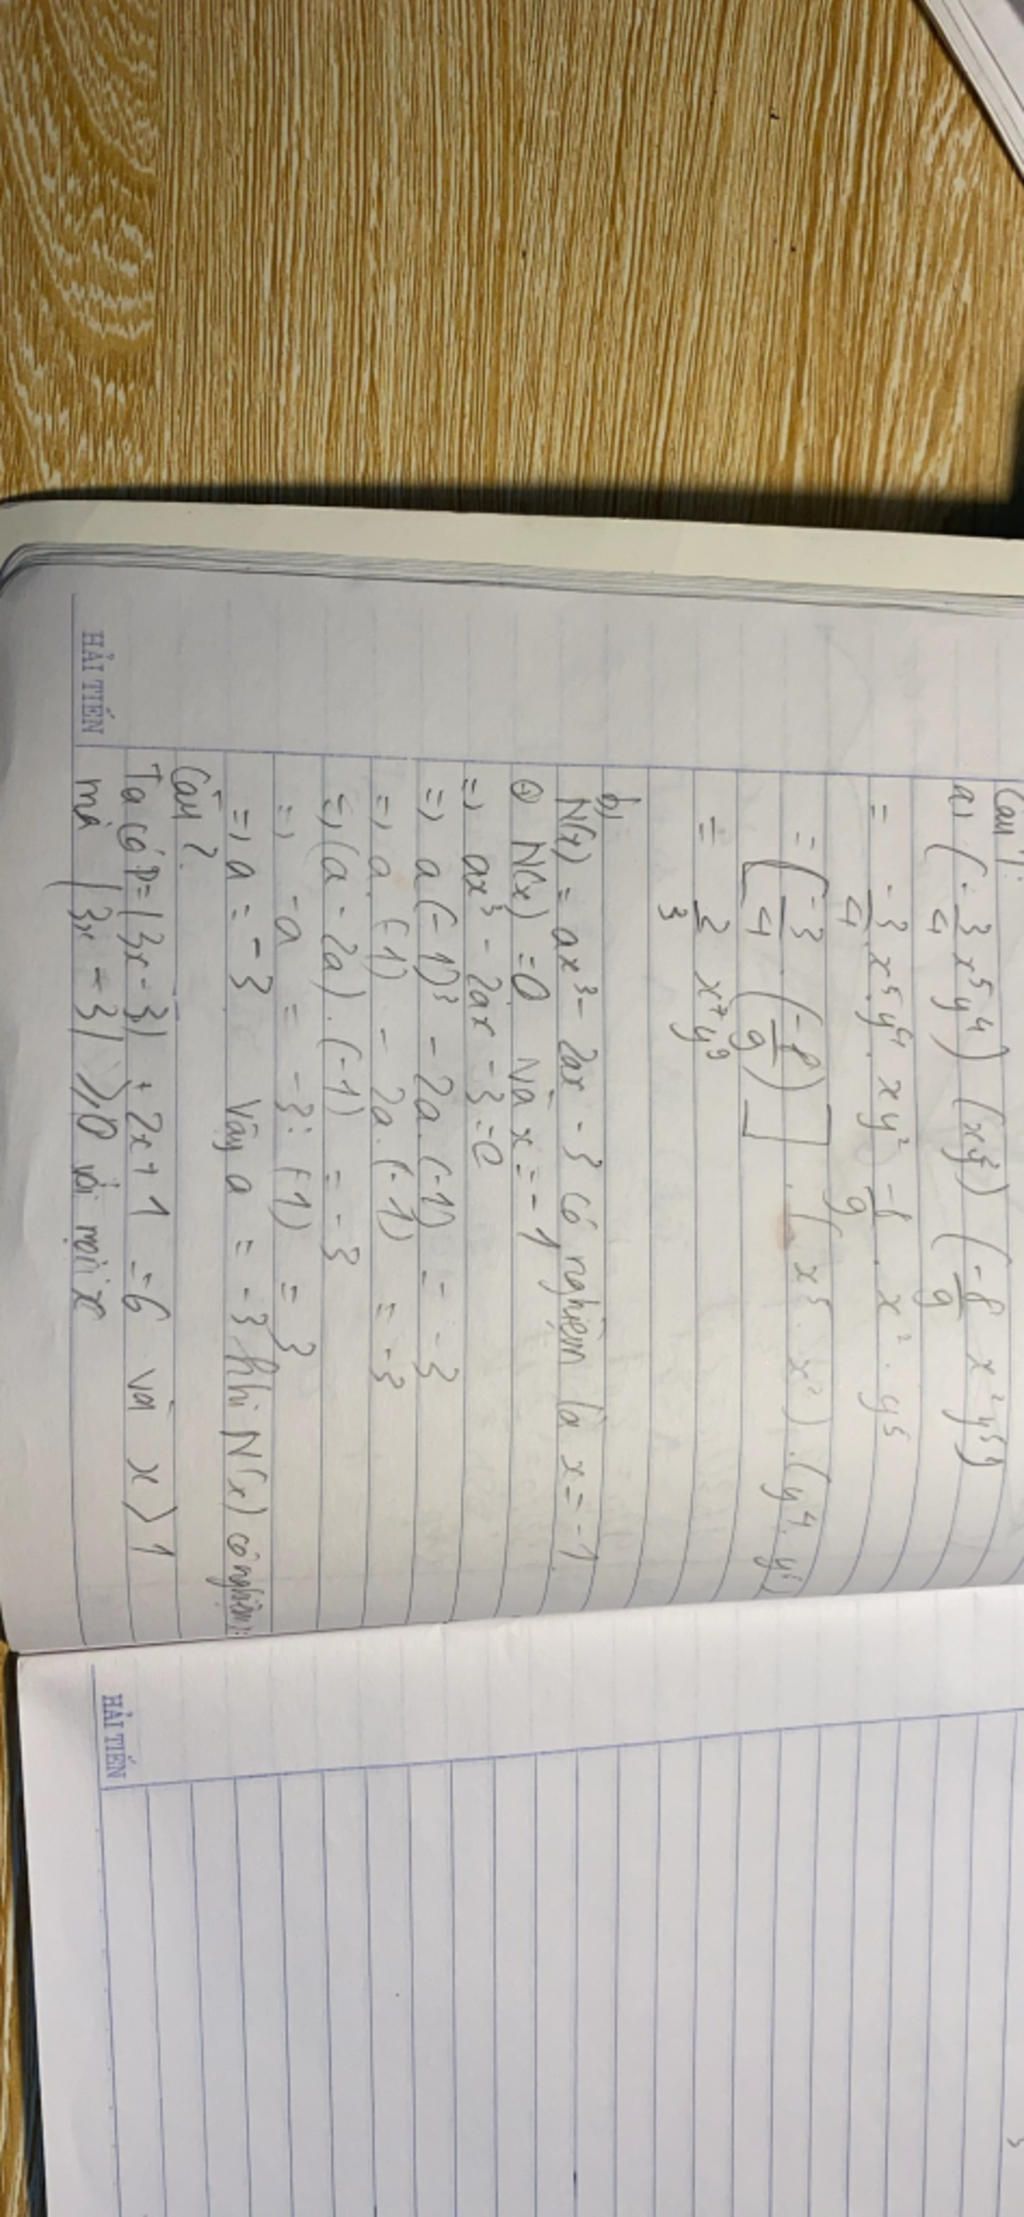 Câu 1:
a, (-3/4 x⁵y⁴) (xy²) (-8/9 x²y⁵)
= -3/4 x⁵.y⁴. xy² -8/9 . x² . y⁵
= [-3/4 . (-8/9)] . (x⁵ . x²) . (y⁴. y²)
= 2/3 x⁷y⁹
b,
N(x) = ax³ - 2ax - 3 có nghiệm là x = -1
N(x) = 0 và x = -1
=> ax³ - 2ax - 3 = 0
=> a(-1)³ - 2a.(-1) = -3
=> a.(-1) - 2a.(-1) = -3
=> (a - 2a).(-1) = -3
=> -a = -3:(-1) = 3
=> a = -3 Vậy a = -3 khi N(x) có nghiệm
Câu 2.
Ta có P = |3x - 3| + 2x + 1 = 6 và x > 1
mà |3x - 3| ⩾ 0 với mọi x
HẢI TIẾN
HẢI TIẾN